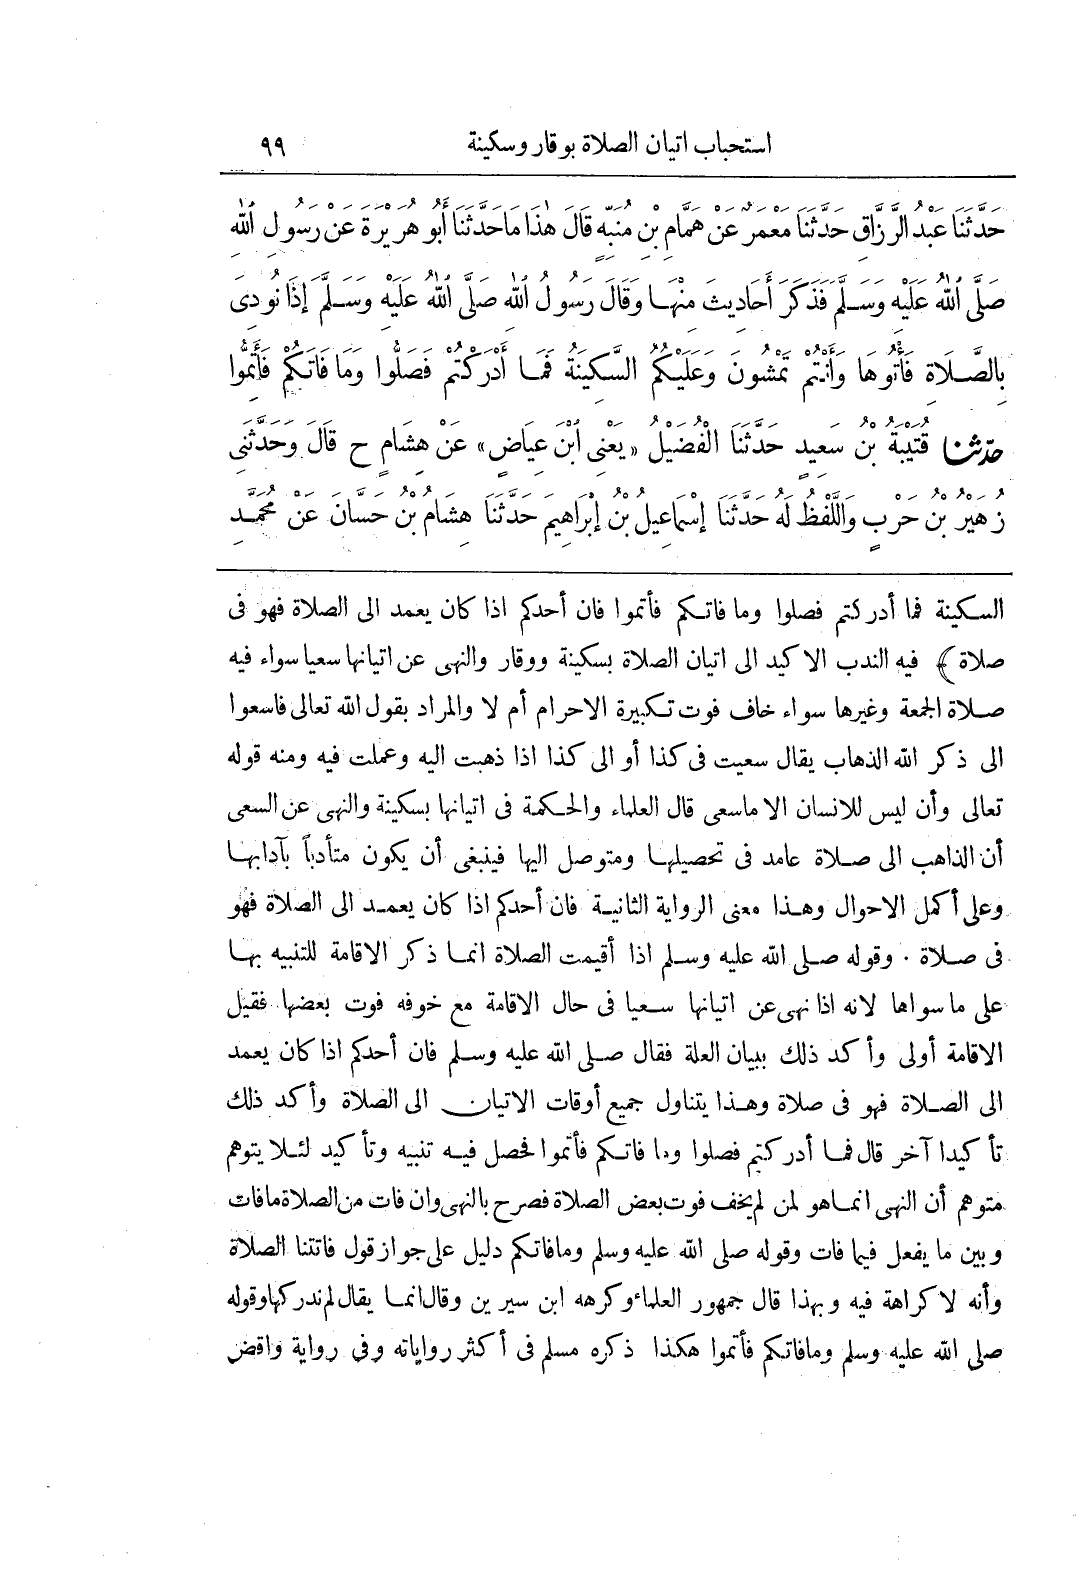 استحباب اتيان الصلاة بوقار وسكينة ٩٩
حَدَّثَنَا عَبْدُ الرَّزَّاقِ حَدَّثَنَا مَعْمَرٌ عَنْ هَمَّامِ بْنِ مُنَبِّهٍ قَالَ هٰذَا مَا حَدَّثَنَا أَبُو هُرَيْرَةَ عَنْ رَسُولِ اللهِ
صَلَّى اللهُ عَلَيْهِ وَسَلَّمَ فَذَكَرَ أَحَادِيثَ مِنْهَا وَقَالَ رَسُولُ اللهِ صَلَّى اللهُ عَلَيْهِ وَسَلَّمَ إِذَا نُودِىَ
بِالصَّلَاةِ فَأْتُوهَا وَأَنْتُمْ تَمْشُونَ وَعَلَيْكُمُ السَّكِينَةُ فَمَا أَدْرَكْتُمْ فَصَلُّوا وَمَا فَاتَكُمْ فَأَتِمُّوا
حدّثنا قُتَيْبَةُ بْنُ سَعِيدٍ حَدَّثَنَا الْفُضَيْلُ «يَعْنِى ابْنَ عِيَاضٍ» عَنْ هِشَامٍ ح قَالَ وَحَدَّثَنِى
زُهَيْرُ بْنُ حَرْبٍ وَاللَّفْظُ لَهُ حَدَّثَنَا إِسْمَاعِيلُ بْنُ إِبْرَاهِيمَ حَدَّثَنَا هِشَامُ بْنُ حَسَّانَ عَنْ مُحَمَّدِ
السكينة فما أدركتم فصلوا وما فاتكم فأتموا فان أحدكم اذا كان يعمد الى الصلاة فهو فى
صلاة ﴾ فيه الندب الاكيد الى اتيان الصلاة بسكينة ووقار والنهى عن اتيانها سعيا سواء فيه
صلاة الجمعة وغيرها سواء خاف فوت تكبيرة الاحرام أم لا والمراد بقول الله تعالى فاسعوا
الى ذكر الله الذهاب يقال سعيت فى كذا أو الى كذا اذا ذهبت اليه وعملت فيه ومنه قوله
تعالى وأن ليس للانسان الا ما سعى قال العلماء والحكمة فى اتيانها بسكينة والنهى عن السعى
أن الذاهب الى صلاة عامد فى تحصيلها ومتوصل اليها فينبغى أن يكون متأدباً بآدابها
وعلى أكمل الاحوال وهذا معنى الرواية الثانية فان أحدكم اذا كان يعمد الى الصلاة فهو
فى صلاة . وقوله صلى الله عليه وسلم اذا أقيمت الصلاة انما ذكر الاقامة للتنبيه بها
على ما سواها لانه اذا نهى عن اتيانها سعيا فى حال الاقامة مع خوفه فوت بعضها فقيل
الاقامة أولى وأكد ذلك ببيان العلة فقال صلى الله عليه وسلم فان أحدكم اذا كان يعمد
الى الصلاة فهو فى صلاة وهذا يتناول جميع أوقات الاتيان الى الصلاة وأكد ذلك
تأكيدا آخر قال فما أدركتم فصلوا وما فاتكم فأتموا فحصل فيه تنبيه وتأكيد لئلا يتوهم
متوهم أن النهى انما هو لمن لم يخف فوت بعض الصلاة فصرح بالنهى وان فات من الصلاة ما فات
وبين ما يفعل فيما فات وقوله صلى الله عليه وسلم وما فاتكم دليل على جواز قول فاتتنا الصلاة
وأنه لا كراهة فيه وبهذا قال جمهور العلماء وكرهه ابن سيرين وقال انما يقال لم ندركها وقوله
صلى الله عليه وسلم وما فاتكم فأتموا هكذا ذكره مسلم فى أكثر رواياته وفى رواية واقض